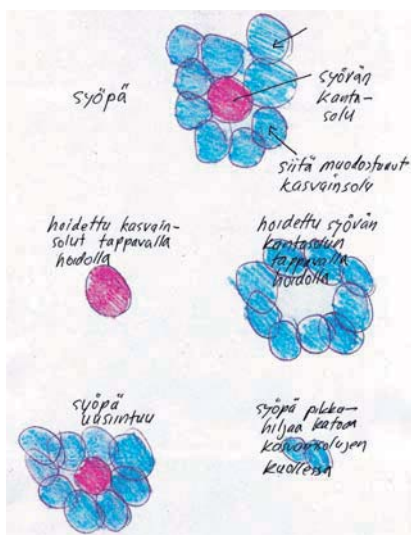 syöpä
syövän
kanta-
solu
siitä muodostunut
kasvainsolu
hoidettu kasvain-
solut tappavalla
hoidolla
hoidettu syövän
kantasolun
tappavalla
hoidolla
syöpä
uusiintuu
syöpä pikku-
hiljaa katoaa
kasvainsolujen
kuollessa